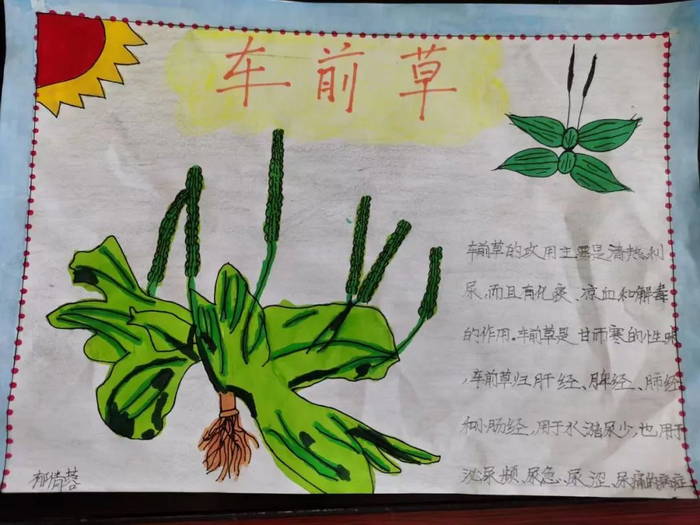 车前草
车前草的效用主要是清热利
尿,而且有化痰、凉血和解毒
的作用.车前草是甘而寒的性味
,车前草归肝经、脾经、肺经
和小肠经,用于水潴尿少,也用于
尿频、尿急、尿涩、尿痛的病症
郁倩蓉